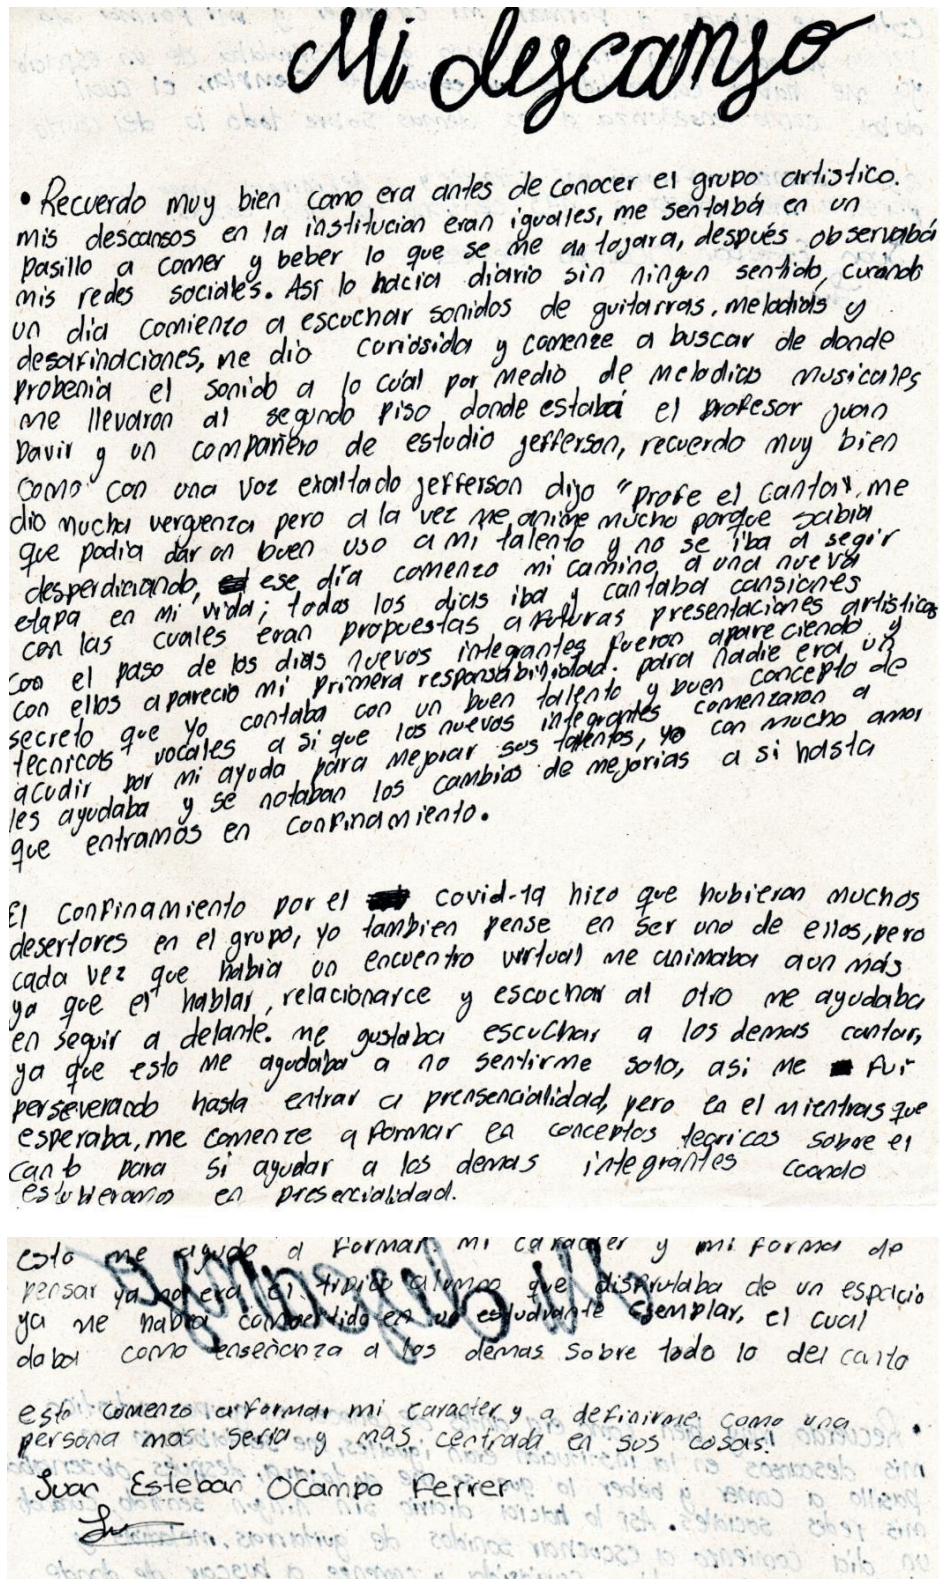 Mi descanso
• Recuerdo muy bien como era antes de conocer el grupo artistico.
mis descansos en la institucion eran iguales, me sentaba en un
pasillo a comer y beber lo que se me an tojara, después observaba
mis redes sociales. Así lo hacia diario sin ningun sentido, cuando
un día comienzo a escuchar sonidos de guitarras, melodias y
desafinaciones, me dio curiosida y comenze a buscar de donde
probenia el sonido a lo cual por medio de melodias musicales
me llevaron al segundo piso donde estaba el profesor juan
Davir y un compañero de estudio jefferson, recuerdo muy bien
como con una voz exaltado jefferson dijo "profe el canta", me
dio mucha verguenza pero a la vez me anime mucho porque sabia
que podia dar un buen uso a mi talento y no se iba a segir
desperdiciando, ese día comenzo mi camino a una nueva
etapa en mi vida; todos los dias iba y cantaba cansiones
con las cuales eran propuestas a futuras presentaciones artisticas
con el paso de los dias nuevos integrantes fueron apareciendo y
con ellos aparecio mi primera responsabilidad. para nadie era un
secreto que yo contaba con un buen talento y buen concepto de
tecnicas vocales a si que los nuevos integrantes comenzaron a
acudir por mi ayuda para mejorar sus talentos, yo con mucho amor
les ayudaba y se notaban los cambios de mejorias a si hasta
que entramos en confinamiento.
El confinamiento por el covid-19 hizo que hubieran muchos
desertores en el grupo, yo tambien pense en ser uno de ellos, pero
cada vez que habia un encuentro virtual me animaba aun más
ya que el hablar, relacionarce y escuchar al otro me ayudaba
en seguir a delante. me gustaba escuchar a los demas cantar,
ya que esto me ayudaba a no sentirme solo, asi me fui
perseverando hasta entrar a prensencialidad, pero en el mientras que
esperaba, me comenze a formar en conceptos teoricos sobre el
canto para si ayudar a los demas integrantes cuando
estubieramos en presencialidad.
esto me ayudo a formar mi caracter y mi forma de
pensar ya no era el tipico alumno que disfrutaba de un espacio
ya me habia convertido en un estudiante ejemplar, el cual
daba como enseñanza a los demas sobre todo lo del canto
esto comenzo a formar mi caracter y a definirme como una
persona mas seria y mas centrada en sus cosas!
Juan Esteban Ocampo Ferrer